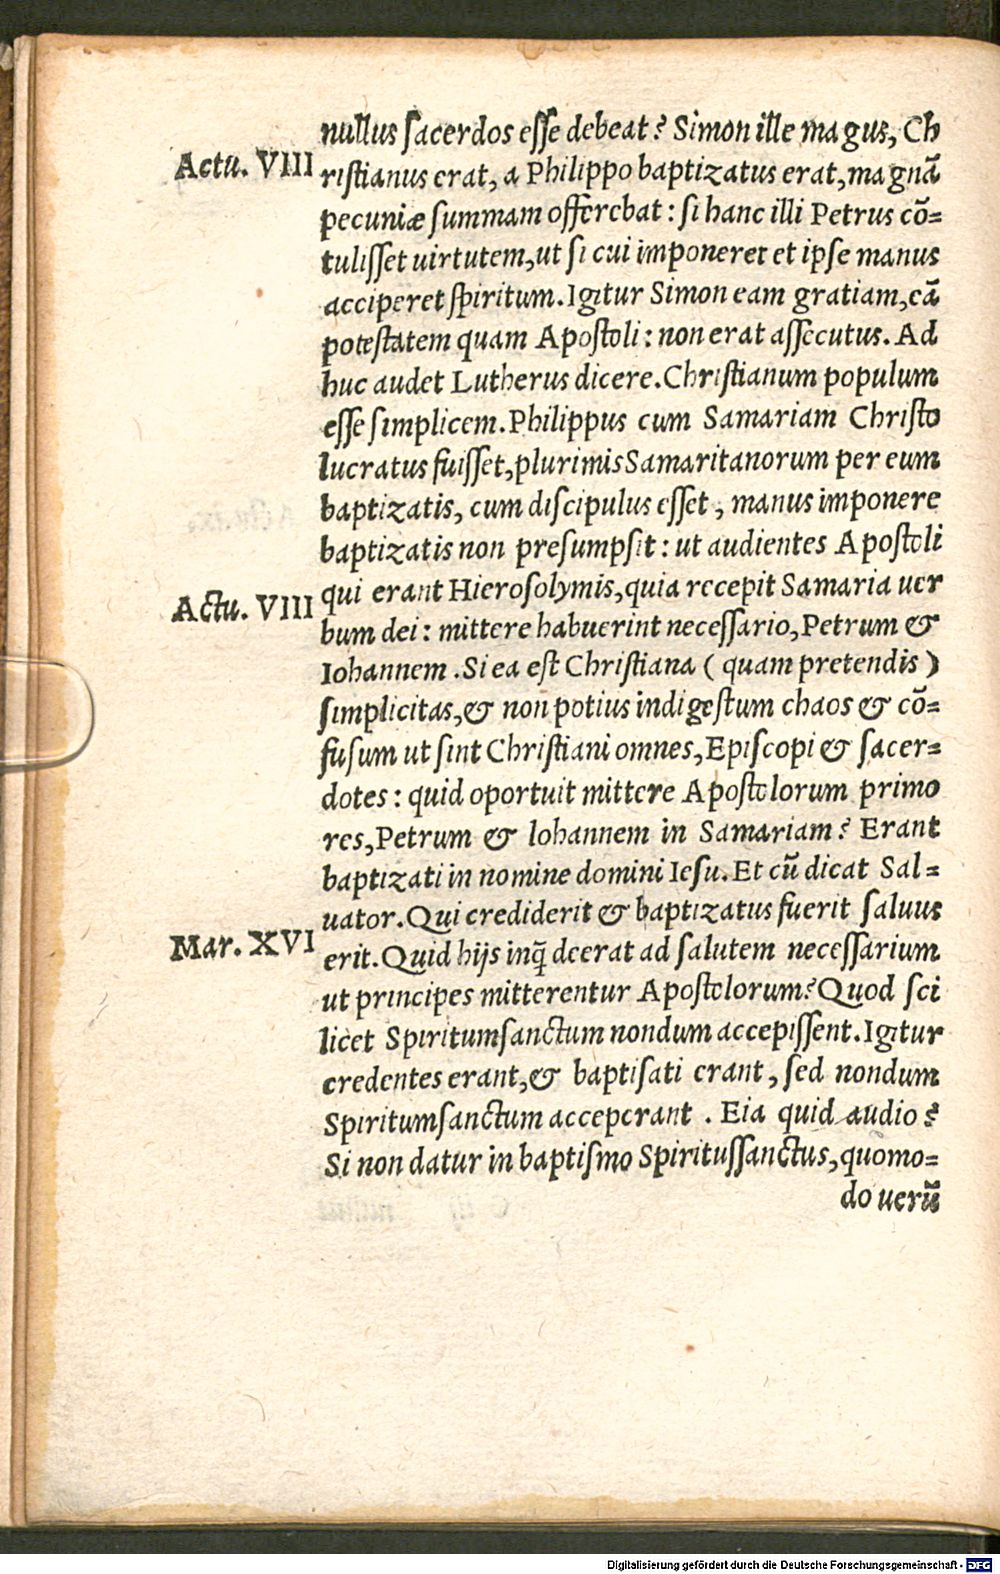 nullus sacerdos esse debeat? Simon ille magus, Ch
Actu. VIII
ristianus erat, a Philippo baptizatus erat, magnā
pecuniæ summam offerebat: si hanc illi Petrus cō=
tulisset uirtutem, ut si cui imponeret et ipse manus
acciperet spiritum. Igitur Simon eam gratiam, eā
potestatem quam Apostoli: non erat assecutus. Ad
huc audet Lutherus dicere. Christianum populum
esse simplicem. Philippus cum Samariam Christo
lucratus fuisset, plurimis Samaritanorum per eum
baptizatis, cum discipulus esset, manus imponere
baptizatis non presumpsit: ut audientes Apostoli
Actu. VIII
qui erant Hierosolymis, quia recepit Samaria uer
bum dei: mittere habuerint necessario, Petrum &
Iohannem. Si ea est Christiana (quam pretendis)
simplicitas, & non potius indigestum chaos & cō=
fusum ut sint Christiani omnes, Episcopi & sacer=
dotes: quid oportuit mittere Apostolorum primo
res, Petrum & Iohannem in Samariam? Erant
baptizati in nomine domini Iesu. Et cū dicat Sal=
uator. Qui crediderit & baptizatus fuerit saluus
Mar. XVI
erit. Quid hijs inq̄ deerat ad salutem necessarium
ut principes mitterentur Apostolorum? Quod sci
licet Spiritumsanctum nondum accepissent. Igitur
credentes erant, & baptisati erant, sed nondum
Spiritumsanctum acceperant. Eia quid audio?
Si non datur in baptismo Spiritussanctus, quomo=
do uerū
Digitalisierung gefördert durch die Deutsche Forschungsgemeinschaft - DFG